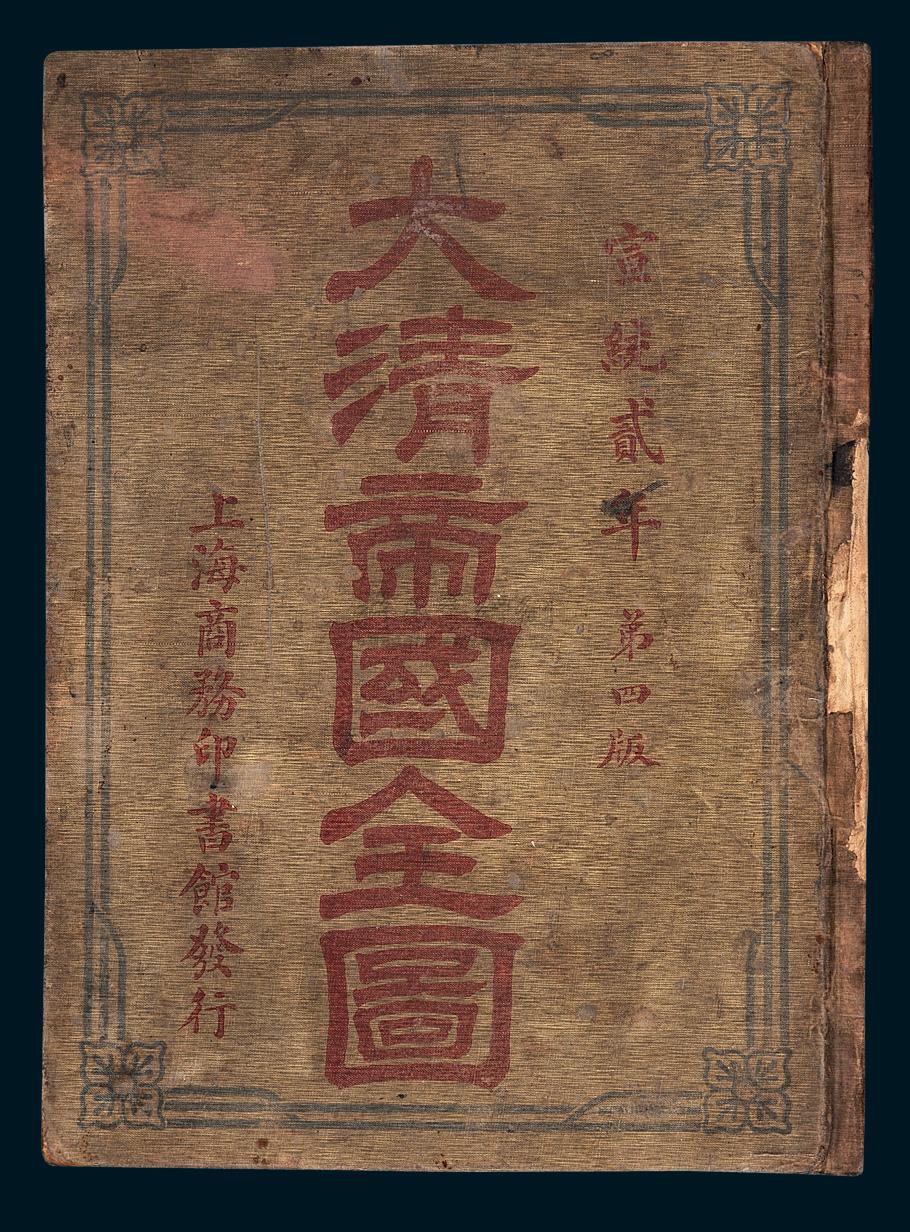 宣統貳年 第四版
大清帝國全圖
上海商務印書館發行